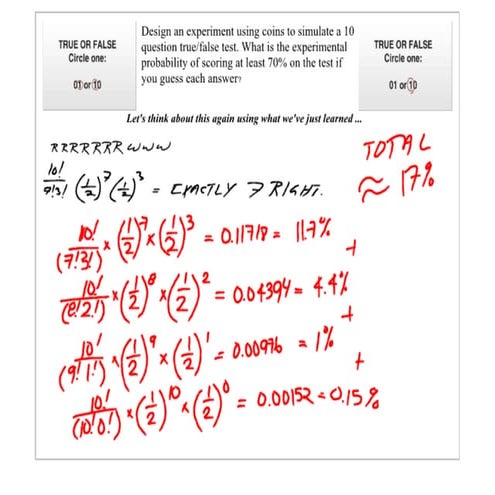 TRUE OR FALSE
Circle one:
01 or 10
Design an experiment using coins to simulate a 10
question true/false test. What is the experimental
probability of scoring at least 70% on the test if
you guess each answer?
TRUE OR FALSE
Circle one:
01 or 10
Let's think about this again using what we've just learned ...
RRRRRRR WWW
10!/7!3! (1/2)^7 (1/2)^3 = EXACTLY 7 RIGHT.
TOTAL
≈ 17%
10!/(7!3!) × (1/2)^7 × (1/2)^3 = 0.11718 = 11.7%
+
10!/(8!2!) × (1/2)^8 × (1/2)^2 = 0.04394 = 4.4%
+
10!/(9!1!) × (1/2)^9 × (1/2)^1 = 0.00976 = 1%
+
10!/(10!0!) × (1/2)^10 × (1/2)^0 = 0.00152 = 0.15%